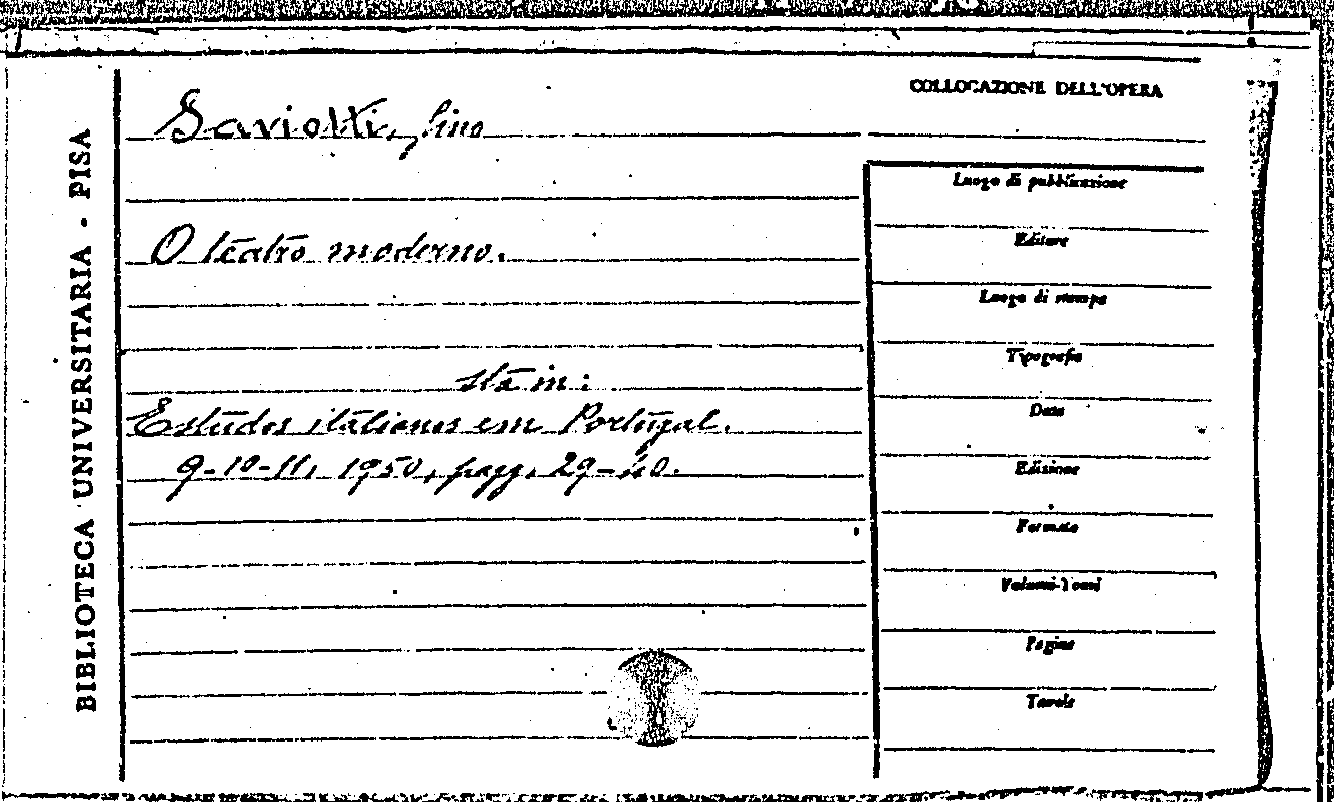 BIBLIOTECA UNIVERSITARIA - PISA
Saviotti, Gino
O teatro moderno.
sta in:
Estudos italianos em Portugal.
9-10-11, 1950, pagg. 29-40.
COLLOCAZIONE DELL'OPERA
Luogo di pubblicazione
Editore
Luogo di stampa
Tipografia
Data
Edizione
Formato
Volumi-Tomi
Pagine
Tavole